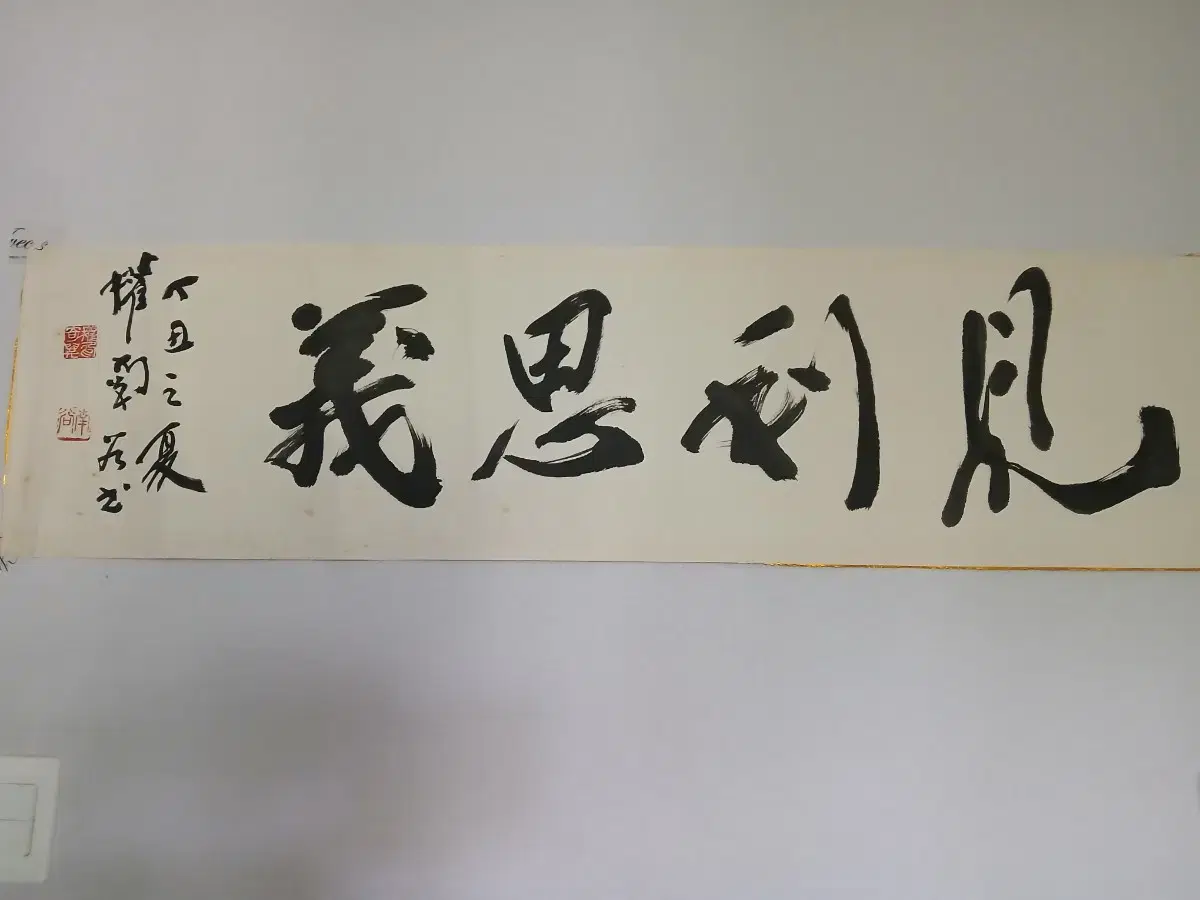 見利思義
丁丑之夏
權
書